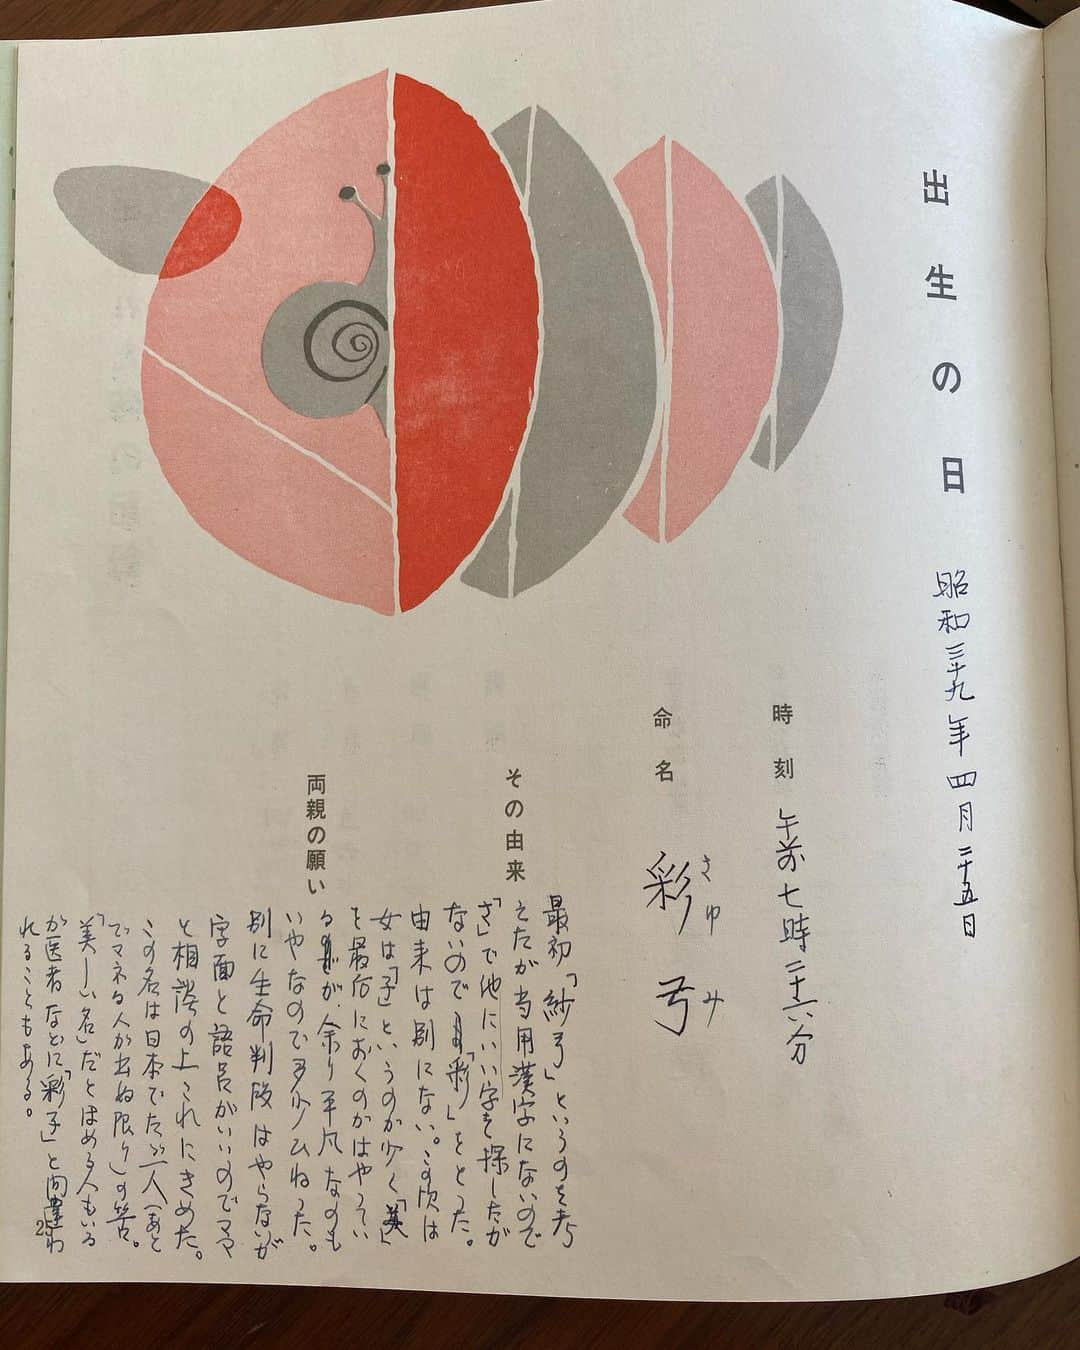 出生の日 昭和三十九年四月二十五日
時刻 午前七時二十六分
命名 彩弓
さゆみ
その由来
最初「紗弓」というのを考
えたが当用漢字にないので
「さ」で他にいい字を探したが
ないので「彩」をとった。
由来は別にない。この頃は
女は「子」というのが少く「美」
を最后におくのがはやってい
るが、余り平凡なのも
いやなので多少ひねった。
両親の願い
別に生命判断はやらないが
字面と語呂がいいのでママ
と相談の上これにきめた。
この名は日本でたゞ一人(あと
でマネる人が出ぬ限り)の筈。
「美しい名」だとほめる人もいる
が医者などに「彩子」と間違わ
れることもある。
2